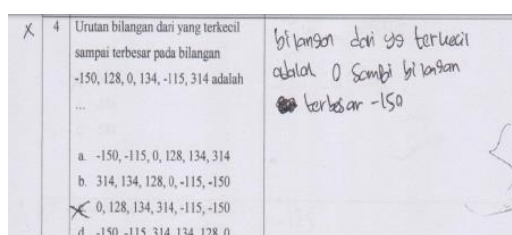 X 4 Urutan bilangan dari yang terkecil
sampai terbesar pada bilangan
-150, 128, 0, 134, -115, 314 adalah
...
a. -150, -115, 0, 128, 134, 314
b. 314, 134, 128, 0, -115, -150
0, 128, 134, 314, -115, -150
d. -150, -115, 314, 134, 128, 0
bilangan dari yg terkecil
adalah 0 sambi bilangan
terbesar -150